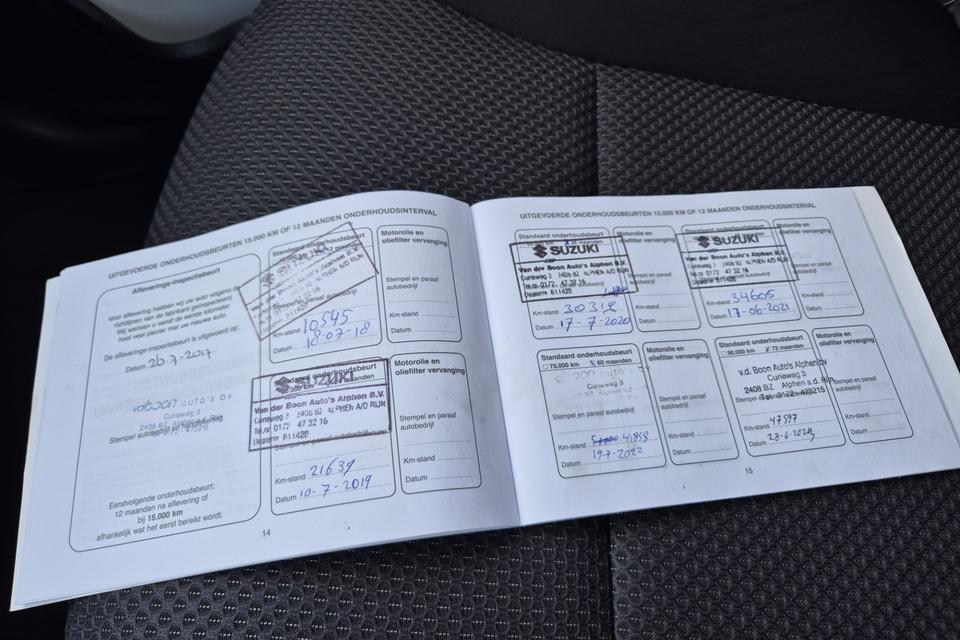 UITGEVOERDE ONDERHOUDSBEURTEN 15.000 KM OF 12 MAANDEN ONDERHOUDSINTERVAL
Afleverings-inspectiebeurt
Voor aflevering hebben wij uw auto volgens de
richtlijnen van de fabrikant geïnspecteerd.
Wij wensen u vanaf de eerste kilometer
heel veel plezier met uw nieuwe auto
De afleverings-inspectiebeurt is uitgevoerd op:
Datum 26-7-2017
auto's bv
Curieweg 3
Stempel autobedrijf en handtekening
Eerstvolgende onderhoudsbeurt:
12 maanden na aflevering of
bij 15.000 km
afhankelijk wat het eerst bereikt wordt.
Standaard onderhoudsbeurt
Km-stand 10545
Datum 18-07-18
Motorolie en
oliefilter vervanging
Stempel en paraaf
autobedrijf
Km-stand
Datum
Standaard onderhoudsbeurt
maanden
SUZUKI
Van der Boon Auto's Alphen B.V.
Curieweg 3 2408 BZ ALPHEN A/D RIJN
Tel.nr. 0172 47 32 16
Dealernr 811420
Km-stand 21639
Datum 10-7-2019
Motorolie en
oliefilter vervanging
Stempel en paraaf
autobedrijf
Km-stand
Datum
14
UITGEVOERDE ONDERHOUDSBEURTEN 15.000 KM OF 12 MAANDEN ONDERHOUDSINTERVAL
Standaard onderhoudsbeurt
maanden
SUZUKI
Van der Boon Auto's Alphen B.V.
Curieweg 3 2408 BZ ALPHEN A/D RIJN
Tel.nr. 0172 47 32 16
Dealernr 811420
Km-stand
Datum 17-7-2020
Motorolie en
oliefilter vervanging
Stempel en paraaf
autobedrijf
Km-stand
Datum
Standaard onderhoudsbeurt
SUZUKI
Van der Boon Auto's Alphen B.V.
Curieweg 3 2408 BZ ALPHEN A/D RIJN
Tel.nr. 0172 47 32 16
Dealernr 811420
Km-stand 34605
Datum 17-06-2021
Motorolie en
vervanging
Km-stand
Datum
Standaard onderhoudsbeurt
75.000 km 60 maanden
Curieweg 3
Stempel en paraaf
autobedrijf
Km-stand 41858
Datum 19-7-2022
Motorolie en
oliefilter vervanging
Stempel en paraaf
autobedrijf
Km-stand
Datum
Standaard onderhoudsbeurt
90.000 km 72 maanden
v.d. Boon Auto's Alphen bv
Curieweg 3
2408 BZ Alphen a.d. Rijn
Tel. 0172-473215
Stempel en paraaf
autobedrijf
Km-stand 47597
Datum
Motorolie en
oliefilter vervanging
Stempel en paraaf
autobedrijf
Km-stand
Datum
15